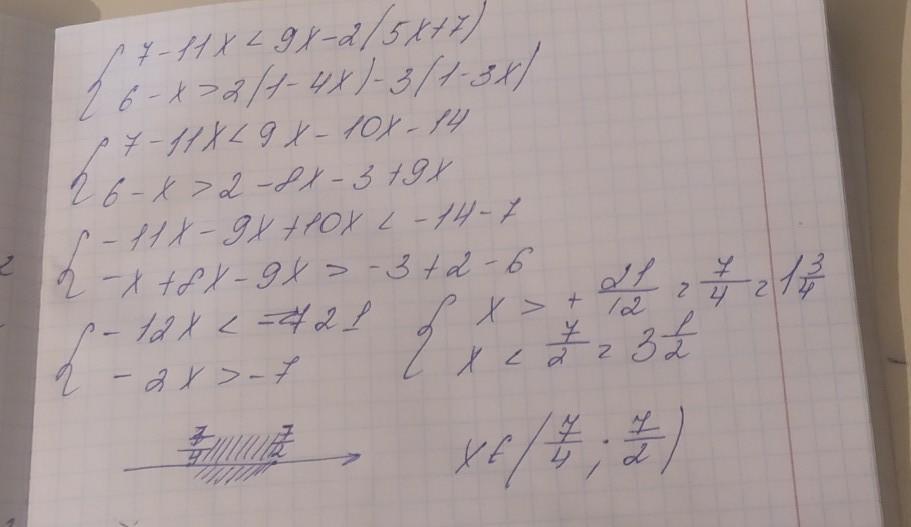 { 7-11x < 9x-2(5x+7)
6-x > 2(1-4x)-3(1-3x)
{ 7-11x < 9x-10x-14
6-x > 2-8x-3+9x
{ -11x-9x+10x < -14-7
-x+8x-9x > -3+2-6
{ -12x < -21
-2x > -7
{ x > + 21/12 = 7/4 = 1 3/4
x < 7/2 = 3 1/2
7/4 7/2
x ∈ (7/4 ; 7/2)